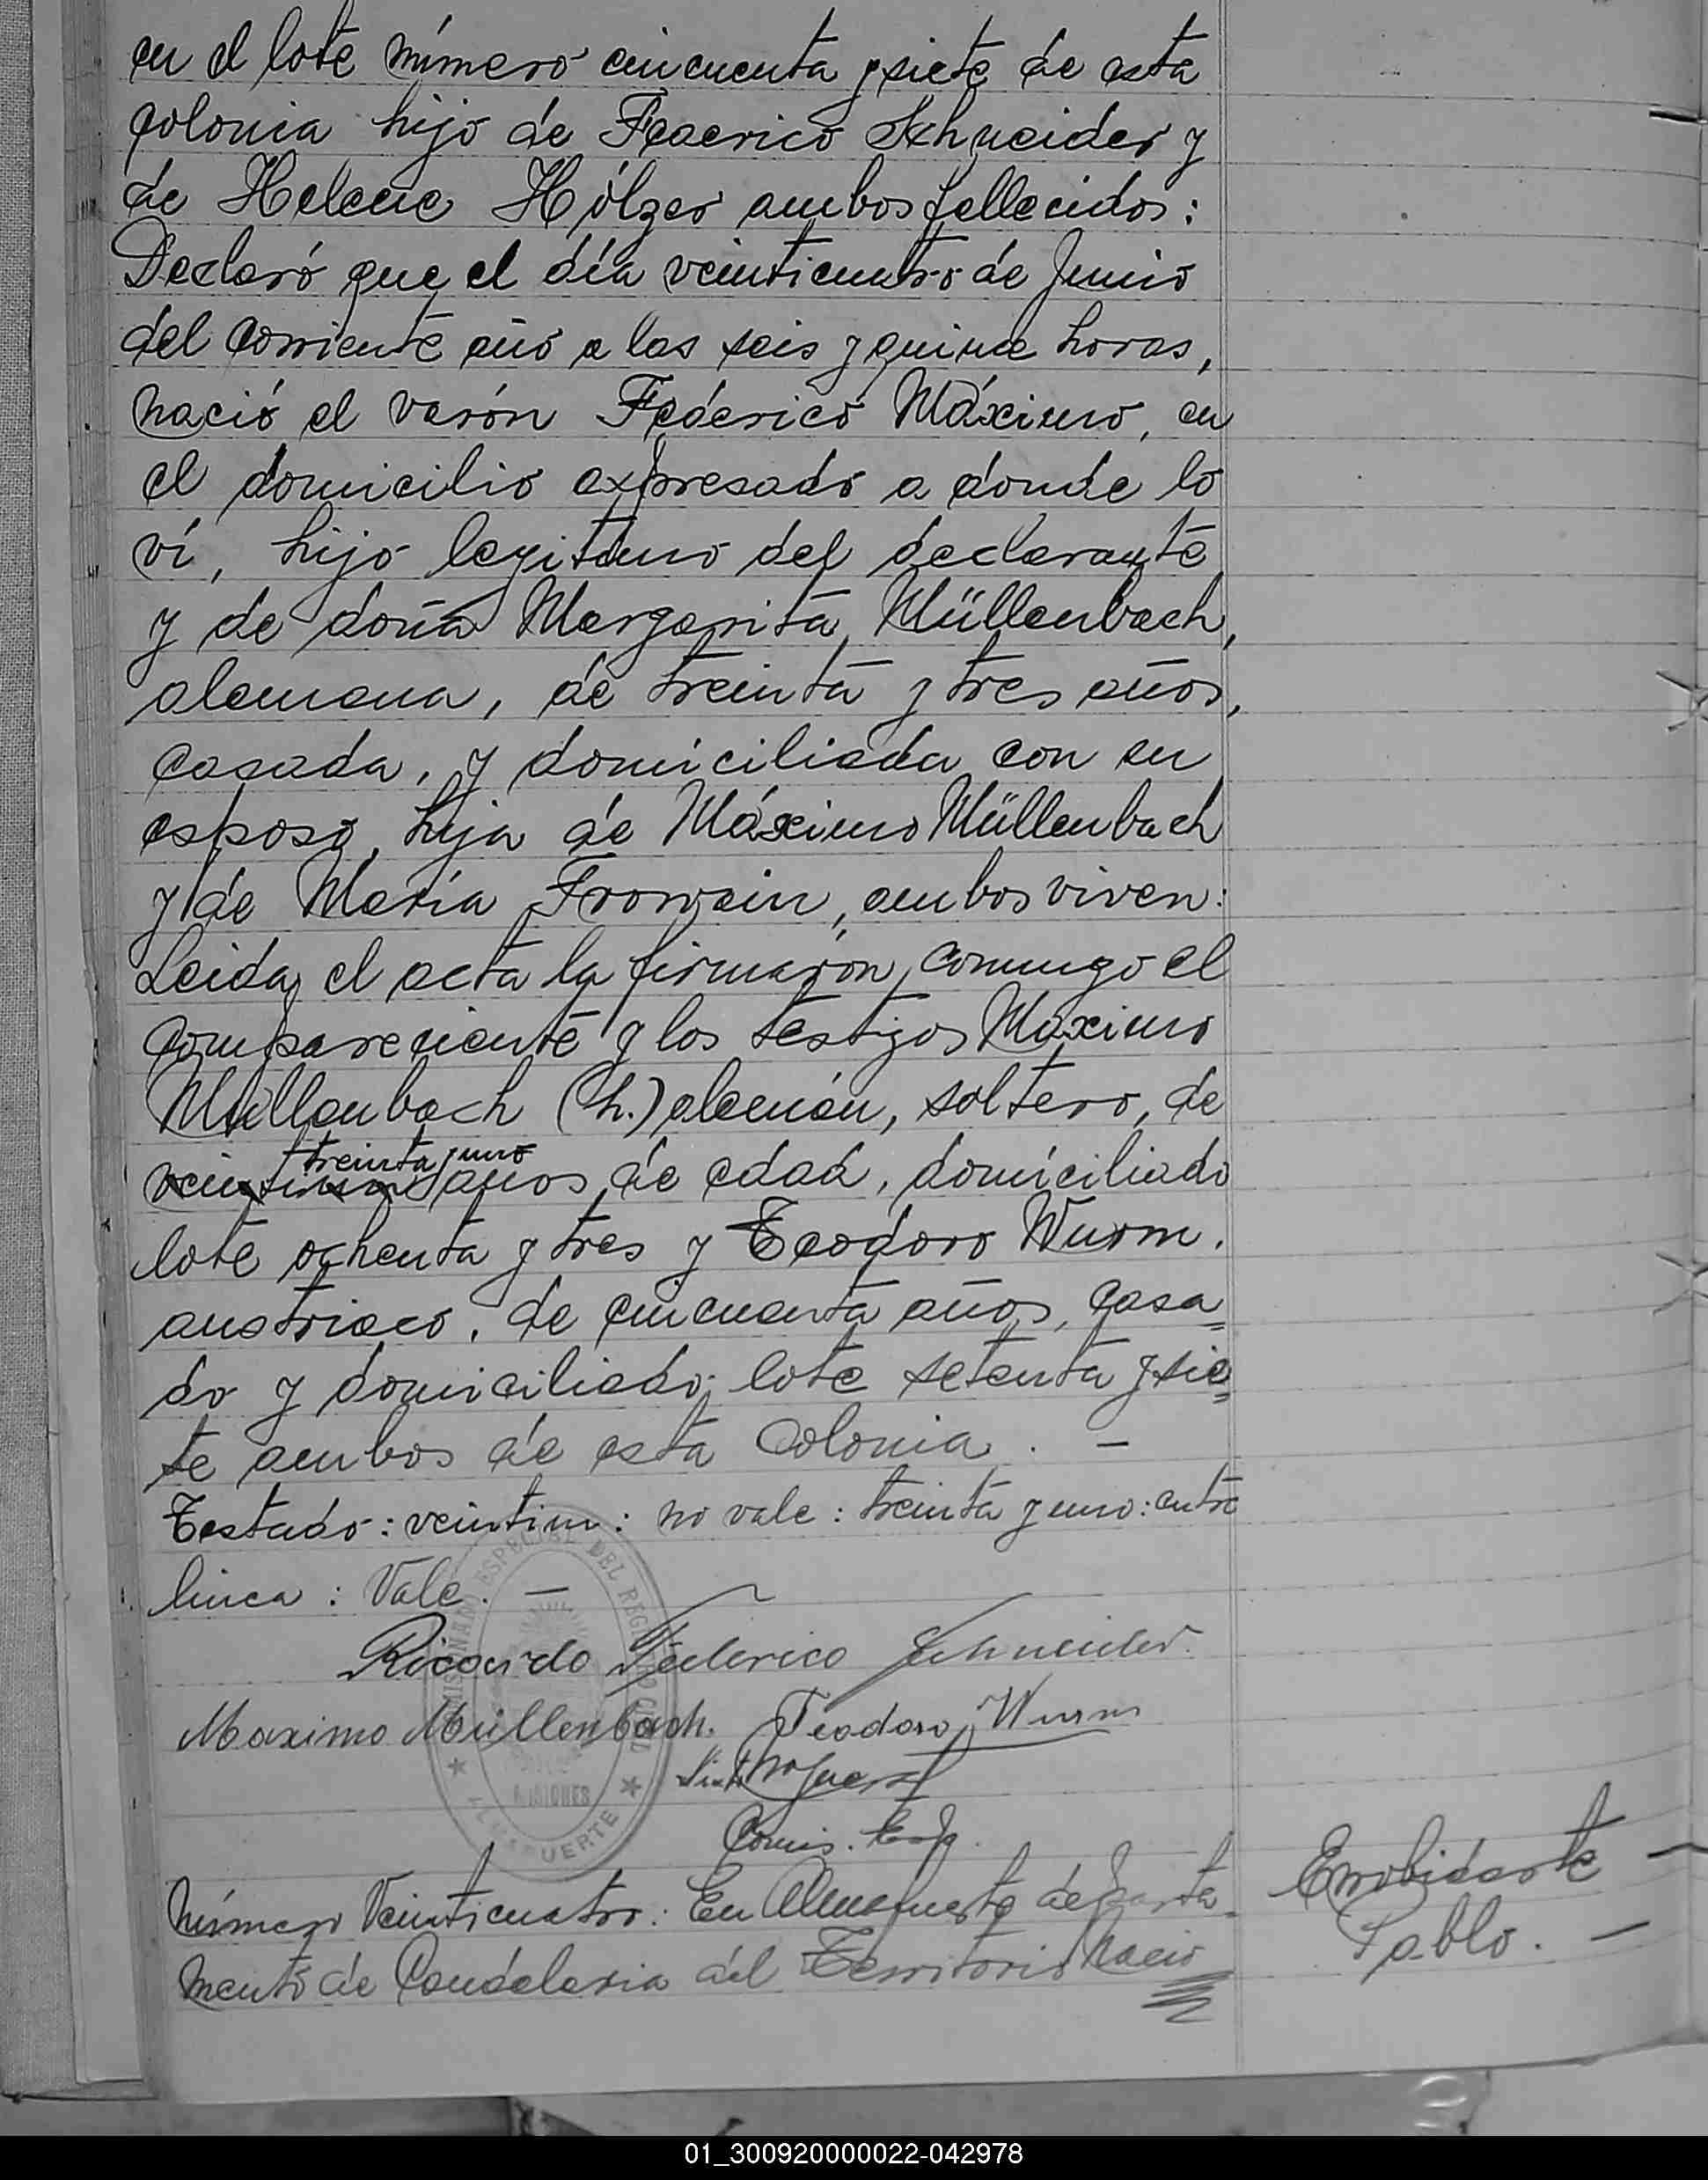 en el lote número cincuenta y siete de esta
colonia hijo de Federico Schneider y
de Helene Hólzer ambos fellecidos:
Declaró que el día veinticuatro de Junio
del corriente año a las seis y quince horas,
nació el varón Federico Máximo, en
el domicilio expresado a donde lo
ví, hijo legitimo del declarante
y de doña Margarita Müllenbach,
alemana, de treinta y tres años,
casada, y domiciliada con su
esposo, hija de Máximo Müllenbach
y de María Frowein, ambos viven:
Leida el acta la firmaron conmigo el
compareciente y los testigos Máximo
Müllenbach (h.) alemán, soltero, de
treinta y uno
años de edad, domiciliado
lote ochenta y tres y Teodoro Wurm.
austriaco, de cincuenta años, casa=
do y domiciliado lote setenta y sie=
te ambos de esta colonia. —
Testado: veintiun: no vale: treinta y uno: entre
linea: Vale. —
Ricardo Federico Schneider.
Maximo Müllenbach. Teodoro Wurm
Comis. Esp.
MISIONES
Número Veinticuatro: En Almafuerte departa=
mento de Candelaria del Territorio Nacio
Pablo. —
01_300920000022-042978